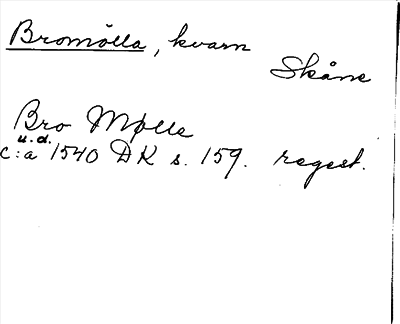 Bromölla, kvarn
Skåne
Bro Mølle
u.d.
c:a 1540 DK s. 159. regest.